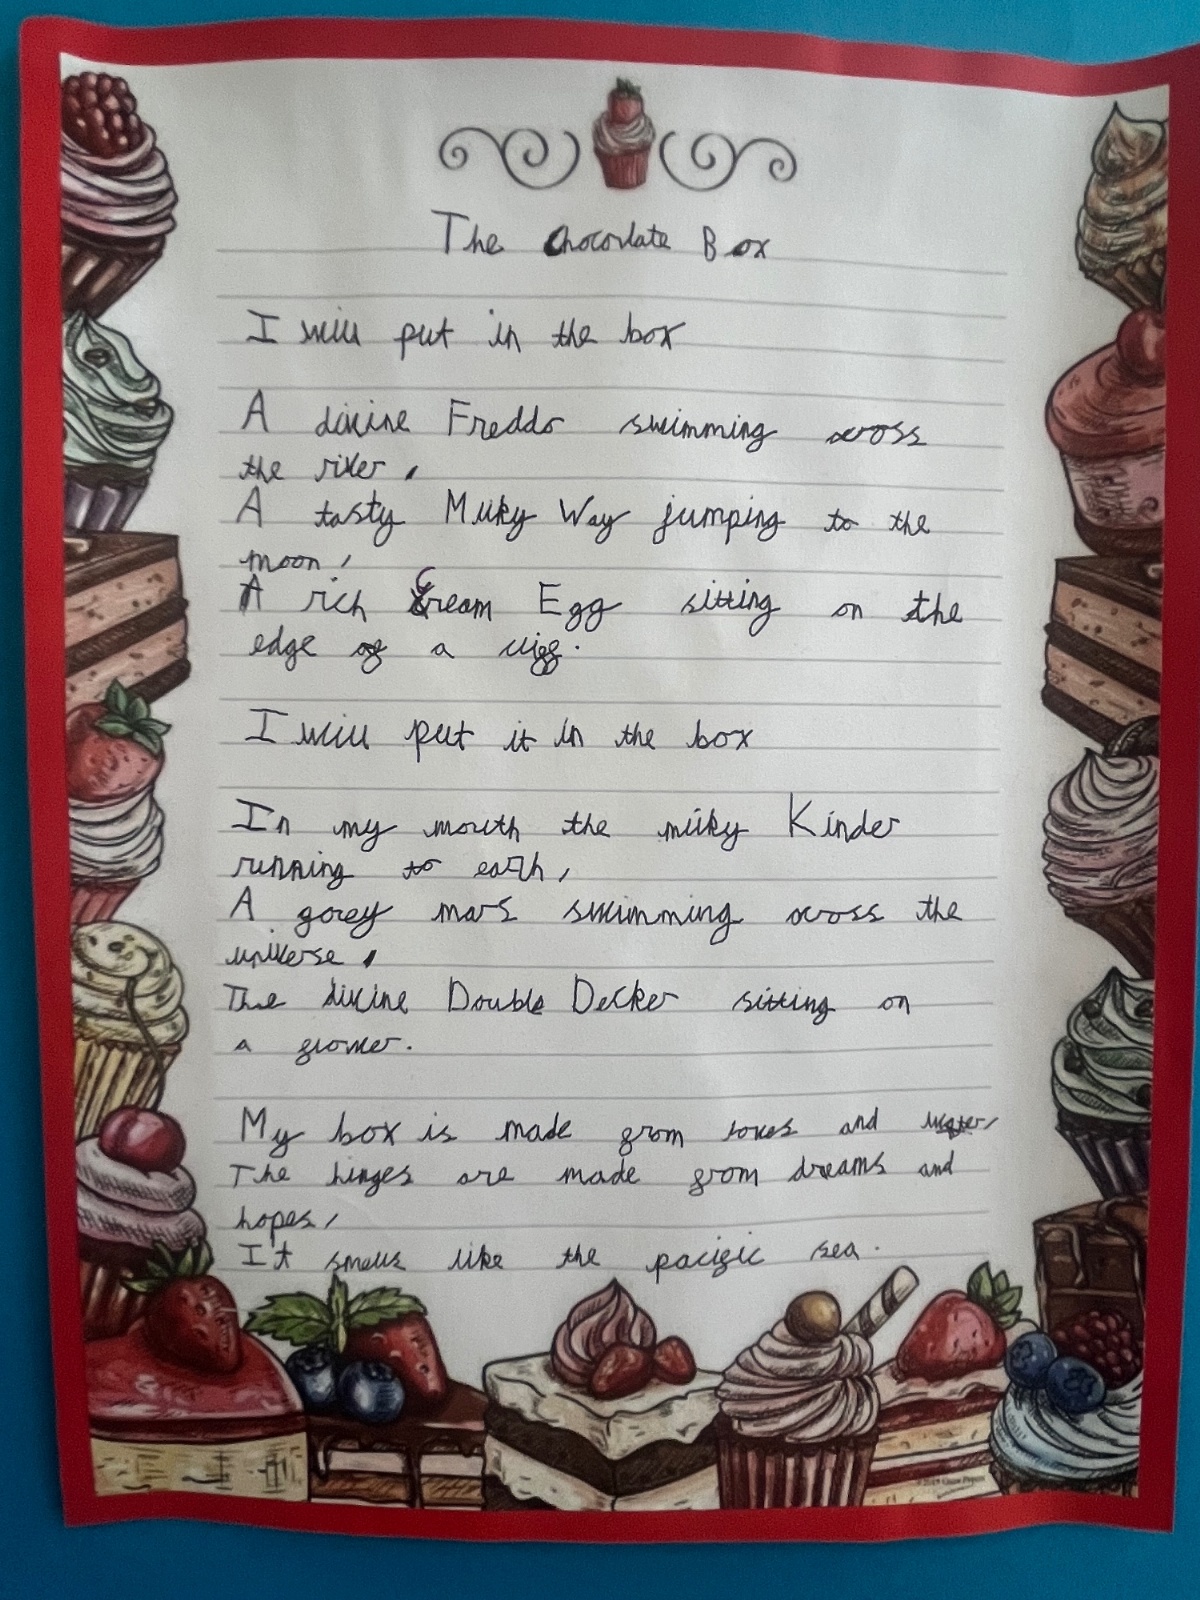 The Chocorlate Box
I will put in the box
A divine Freddo swimming across
the river,
A tasty Milky Way jumping to the
moon,
A rich Cream Egg sitting on the
edge of a cliff.
I will put it in the box
In my mouth the milky Kinder
running to earth,
A gorey mars swimming across the
universe,
The divine Double Decker sitting on
a flower.
My box is made from and
The hinges are made from dreams and
hopes,
It smells like the pacific sea.